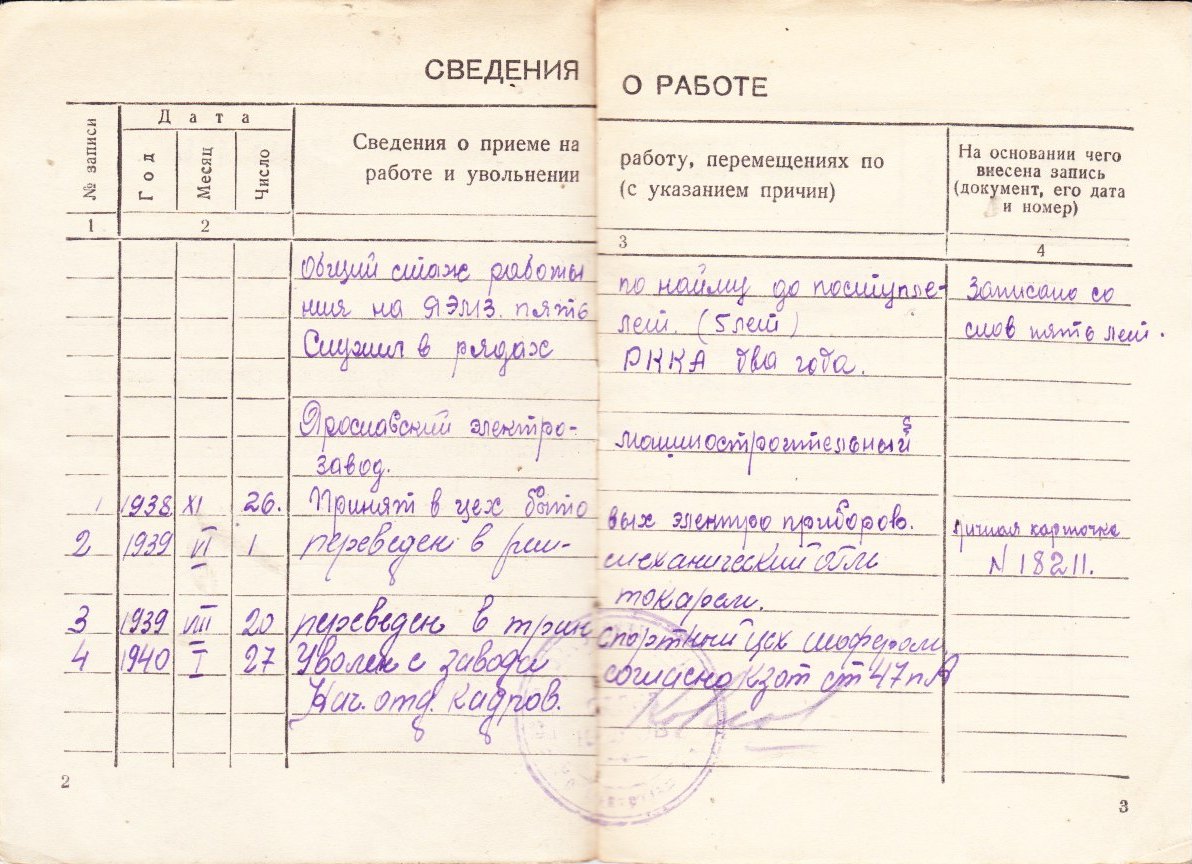 СВЕДЕНИЯ О РАБОТЕ
№ записи
Дата
Год
Месяц
Число
Сведения о приеме на работу, перемещениях по
работе и увольнении (с указанием причин)
На основании чего
внесена запись
(документ, его дата
и номер)
1 2 3 4
Общий стаж работы по найму до поступле- Записано со
ния на ЯЭМЗ. пять лет. (5 лет) слов пять лет.
Служил в рядах РККА два года.
Ярославский электро- машиностроительный
завод.
1 1938 XI 26. Принят в цех быто вых электро приборов.
2 1939 VI 1 переведен в рем- механический отд личная карточка
токарем. N 18211.
3 1939 VIII 20 переведен в тран спортный цех шофером
4 1940 I 27 Уволен с завода согласно Кзот ст 47 п А
Нач. отд. кадров.
2
3